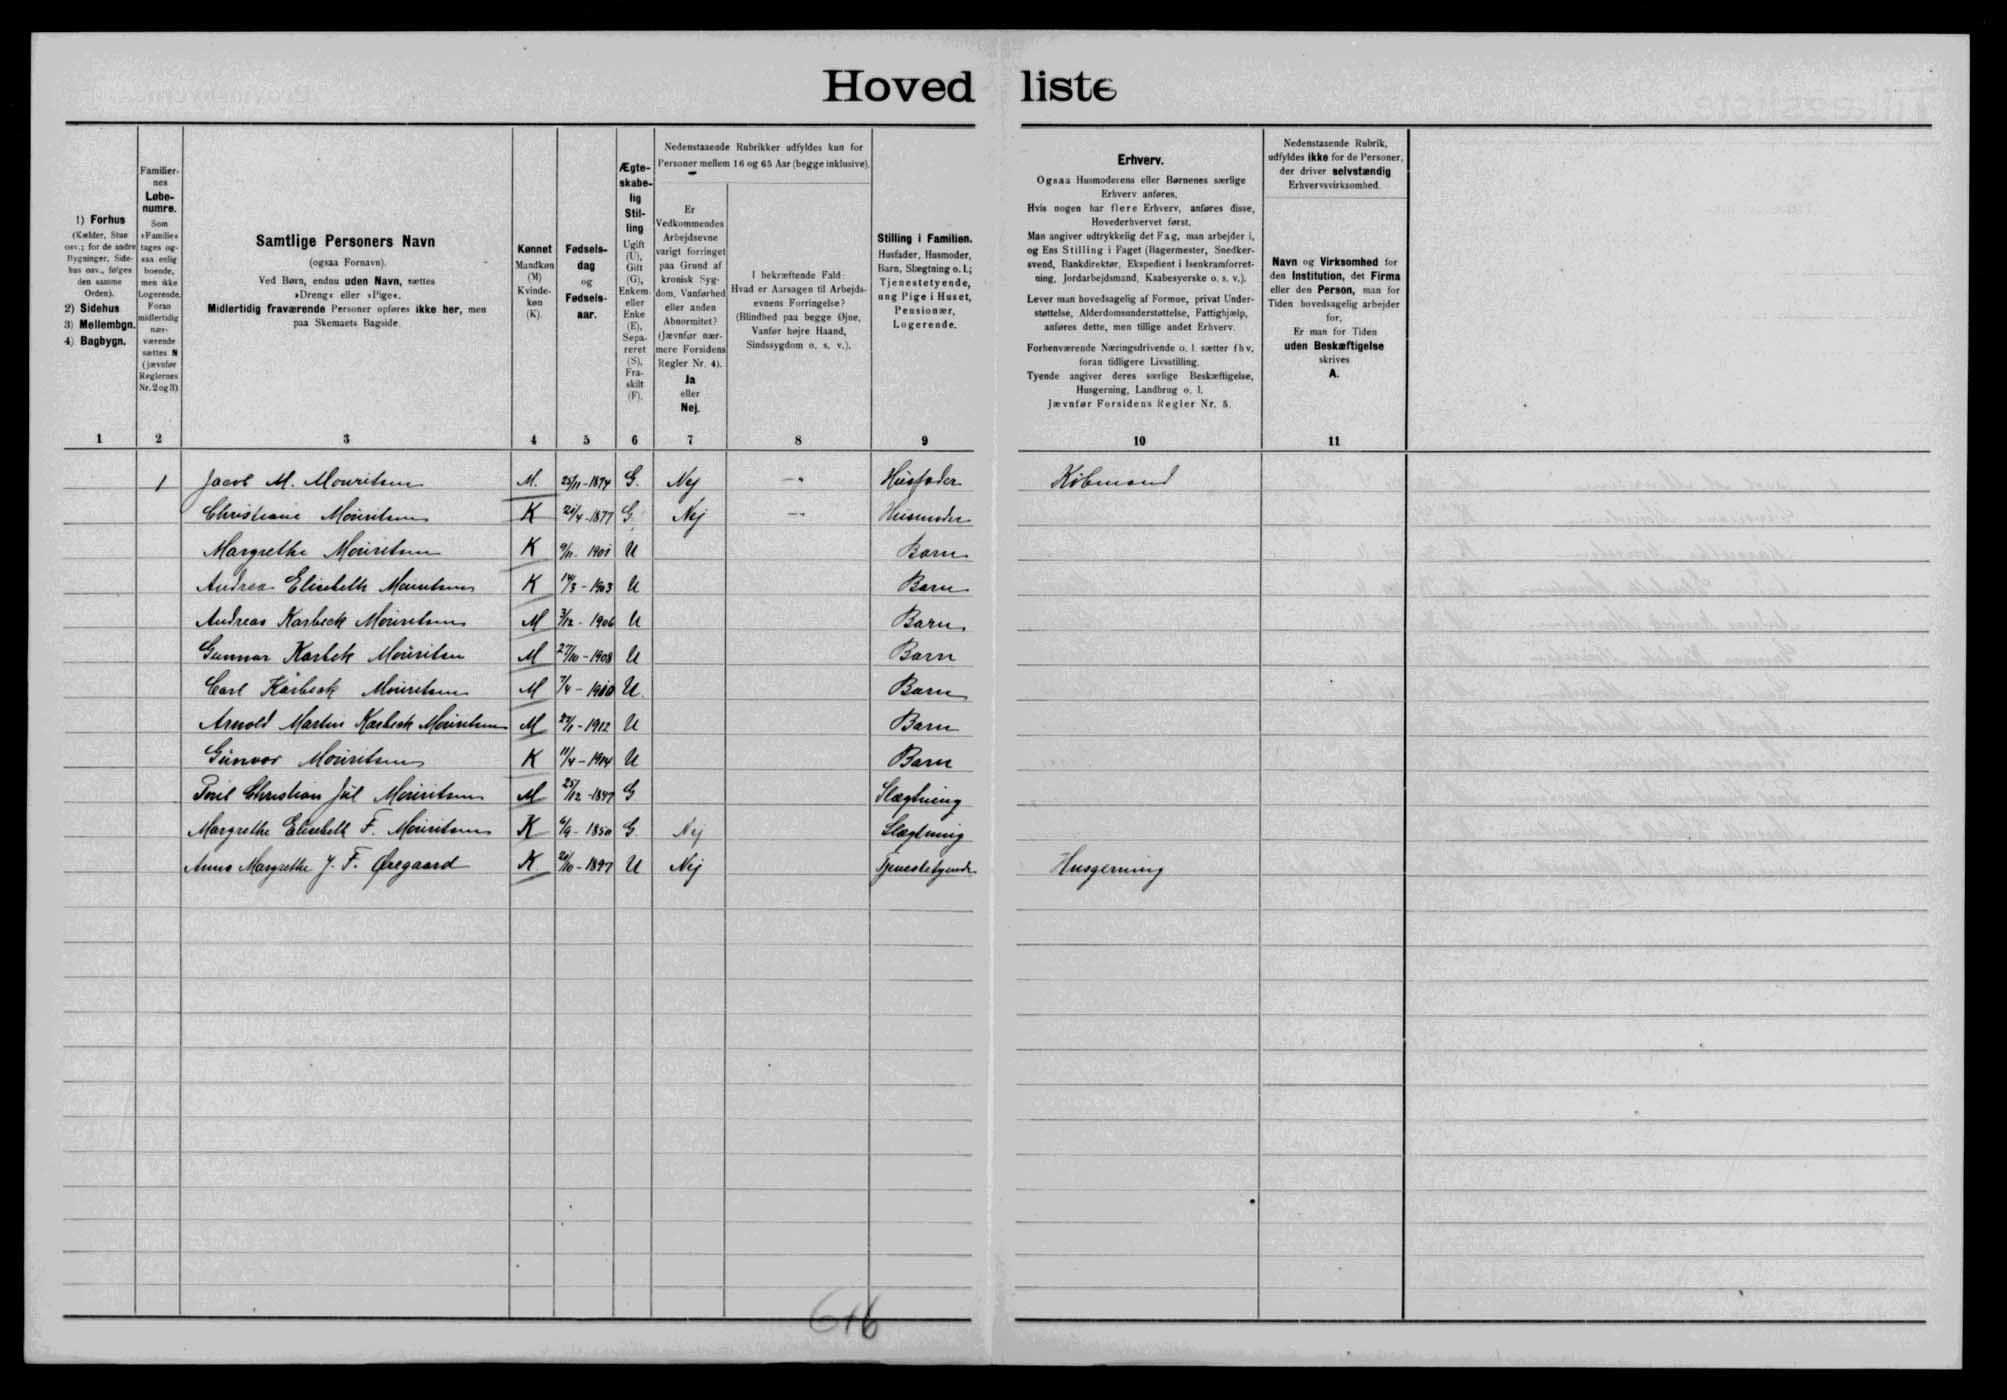 Hovedliste
1) Forhus
(Kælder, Stue
osv.; for de andre
Bygninger, Side-
hus osv., følges
den samme
Orden).
2) Sidehus
3) Mellembgn.
4) Bagbygn.
1
Familier-
nes
Løbe-
numre.
Som
»Familie«
tages og-
saa enlig
boende,
men ikke
Logerende.
Foran
midlertidig
nær-
værende
sættes N
(jævnfør
Reglernes
Nr. 2 og 3).
2
Samtlige Personers Navn
(ogsaa Fornavn).
Ved Børn, endnu uden Navn, sættes
»Dreng« eller »Pige«.
Midlertidig fraværende Personer opføres ikke her, men
paa Skemaets Bagside.
3
Kønnet
Mandkøn
(M)
Kvinde-
køn
(K).
4
Fødsels-
dag
og
Fødsels-
aar.
5
Ægte-
skabe-
lig
Stil-
ling
Ugift
(U),
Gift
(G),
Enkem.
eller
Enke
(E),
Sepa-
reret
(S),
Fra-
skilt
(F).
6
Nedenstaaende Rubrikker udfyldes kun for
Personer mellem 16 og 65 Aar (begge inklusive).
Er
Vedkommendes
Arbejdsevne
varigt forringet
paa Grund af
kronisk Syg-
dom, Vanførhed
eller anden
Abnormitet?
(Jævnfør nær-
mere Forsidens
Regler Nr. 4).
Ja
eller
Nej.
7
I bekræftende Fald:
Hvad er Aarsagen til Arbejds-
evnens Forringelse?
(Blindhed paa begge Øjne,
Vanfør højre Haand,
Sindssygdom o. s. v.).
8
Stilling i Familien.
Husfader, Husmoder,
Barn, Slægtning o. l.;
Tjenestetyende,
ung Pige i Huset,
Pensionær,
Logerende.
9
Erhverv.
Ogsaa Husmoderens eller Børnenes særlige
Erhverv anføres.
Hvis nogen har flere Erhverv, anføres disse,
Hovederhvervet først.
Man angiver udtrykkelig det Fag, man arbejder i,
og Ens Stilling i Faget (Bagermester, Snedker-
svend, Bankdirektør, Ekspedient i Isenkramforret-
ning, Jordarbejdsmand, Kaabesyerske o. s. v.).
Lever man hovedsagelig af Formue, privat Under-
støttelse, Alderdomsunderstøttelse, Fattighjælp,
anføres dette, men tillige andet Erhverv.
Forhenværende Næringsdrivende o. l. sætter fhv.
foran tidligere Livsstilling.
Tyende angiver deres særlige Beskæftigelse,
Husgerning, Landbrug o. l.
Jævnfør Forsidens Regler Nr. 5.
10
Nedenstaaende Rubrik,
udfyldes ikke for de Personer,
der driver selvstændig
Erhvervsvirksomhed.
Navn og Virksomhed for
den Institution, det Firma
eller den Person, man for
Tiden hovedsagelig arbejder
for,
Er man for Tiden
uden Beskæftigelse
skrives
A.
11
1 Jacob M. Mouritsen M. 25/11-1874 G. Nej —" Husfader Købmand
Christiane Mouritsen K 21/4-1877 G Nej —" Husmoder
Margrethe Mouritsen K 9/11-1901 U Barn
Andrea Elisabeth Mouritsen K 14/3-1903 U Barn
Andreas Karbeck Mouritsen M 3/12-1906 U Barn
Gunnar Karbek Mouritsen M 27/10-1908 U Barn
Carl Karbeck Mouritsen M 7/4-1910 U. Barn
Arnold Martin Karbeck Mouritsen M 1912 U Barn
Gunvor Mouritsen K 11/4-1914 U Barn
Christian Jul Mouritsen M 25/12-1847 G Slægtning
Margrethe Elisabeth F. Mouritsen K 6/9-1850 G. Nej Slægtning
Anna Margrethe J. F. Øregaard K 1897 U Nej Tjenestetyende Husgerning
616